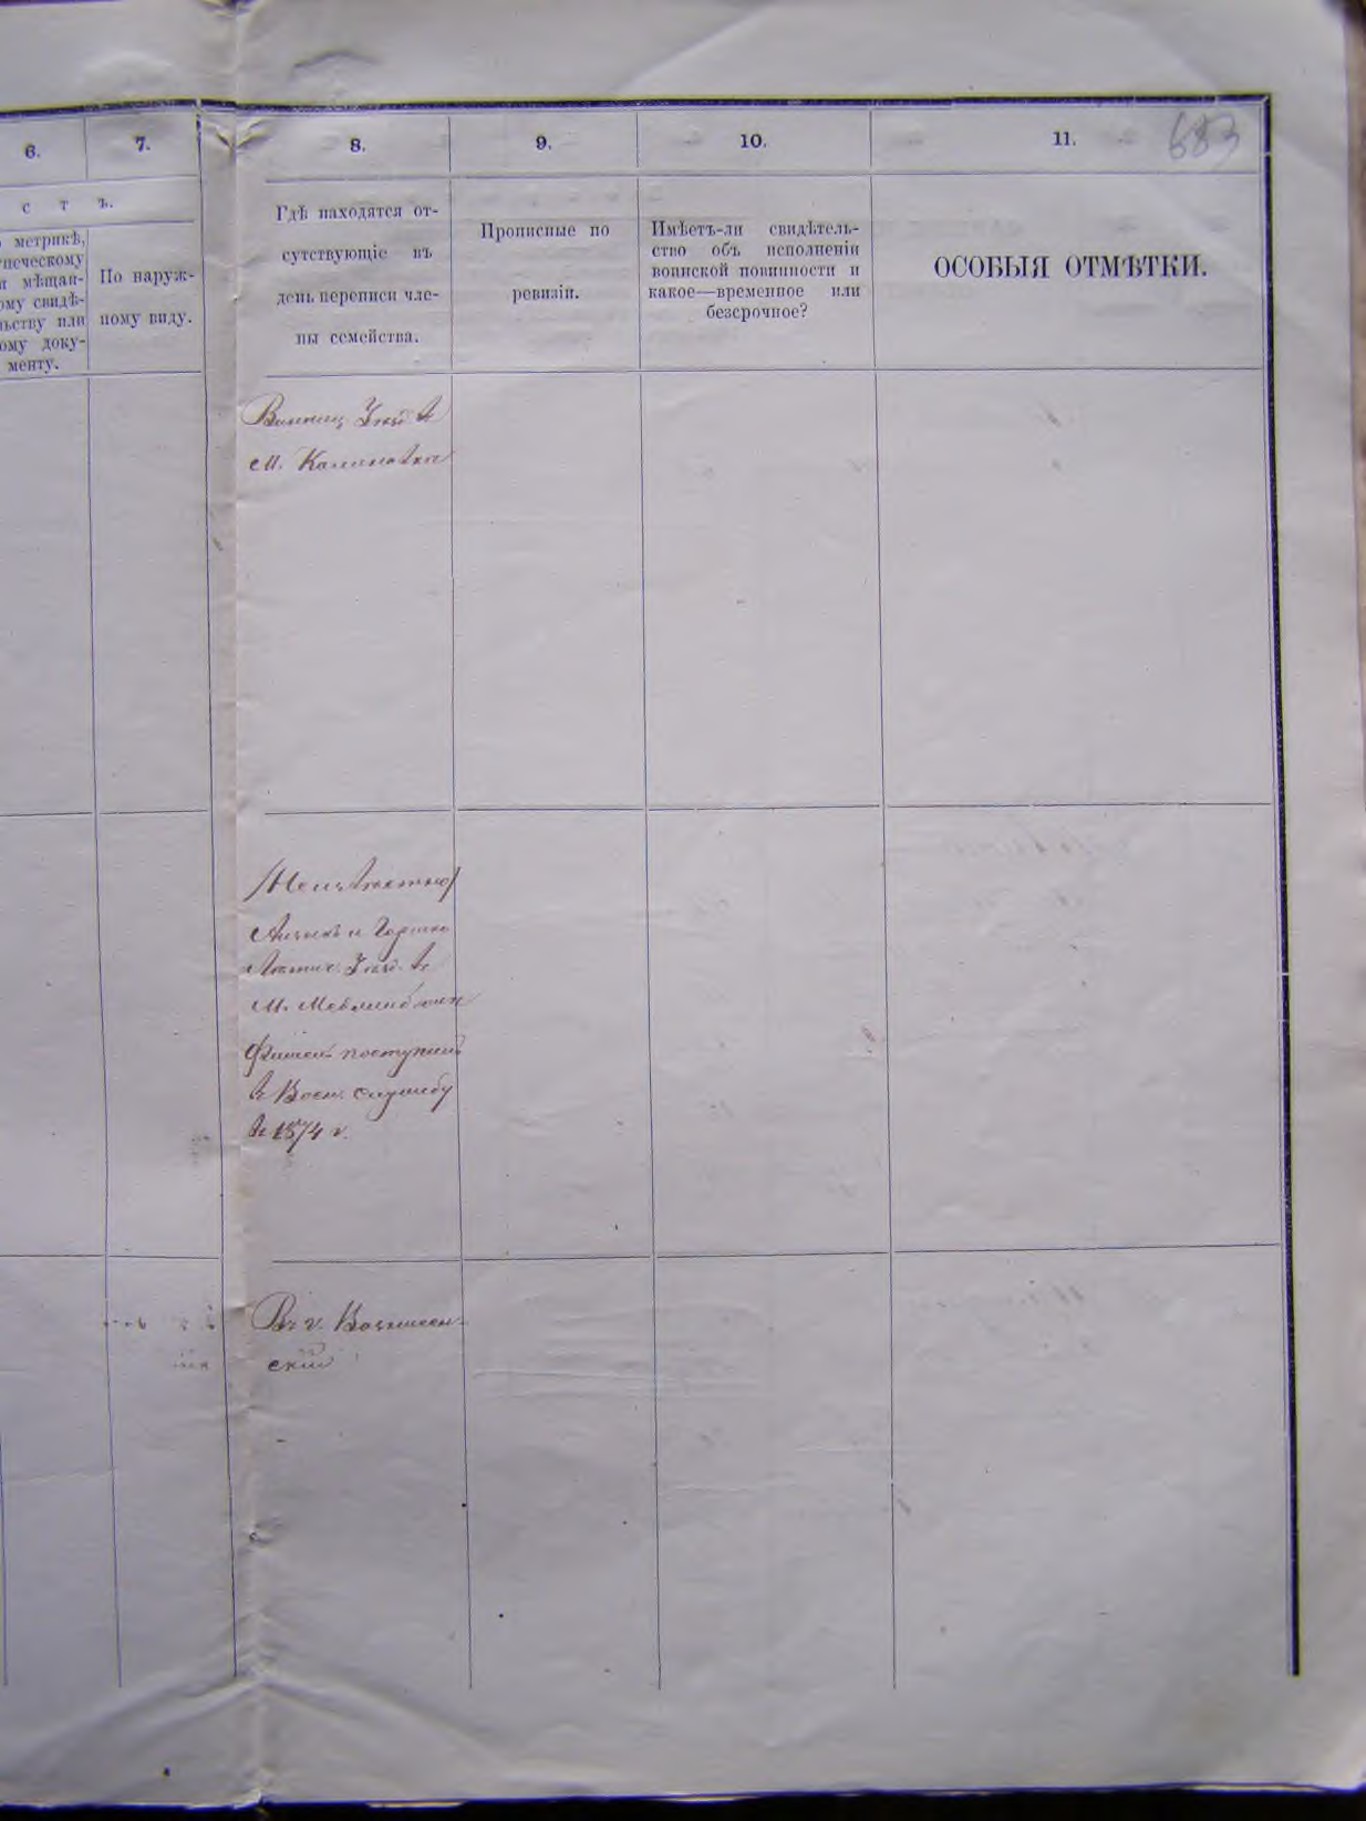 683
6.
7.
8.
9.
10.
11.
с т ъ.
метрикѣ,
печескому
мѣщан-
ому свидѣ-
льству или
ому доку-
менту.
По наруж-
ному виду.
Гдѣ находятся от-
сутствующіе въ
день переписи чле-
ны семейства.
Прописные по
ревизіи.
Имѣетъ-ли свидѣтель-
ство объ исполненіи
воинской повинности и
какое—временное или
безсрочное?
ОСОБЫЯ ОТМѢТКИ.
Винниц. Уезд. в
м. Калиновке
/Неизвестно/
и Гершко
Уезд. в
м.
поступил
в Воен. службу
в 1874 г.
Въ г.
ский